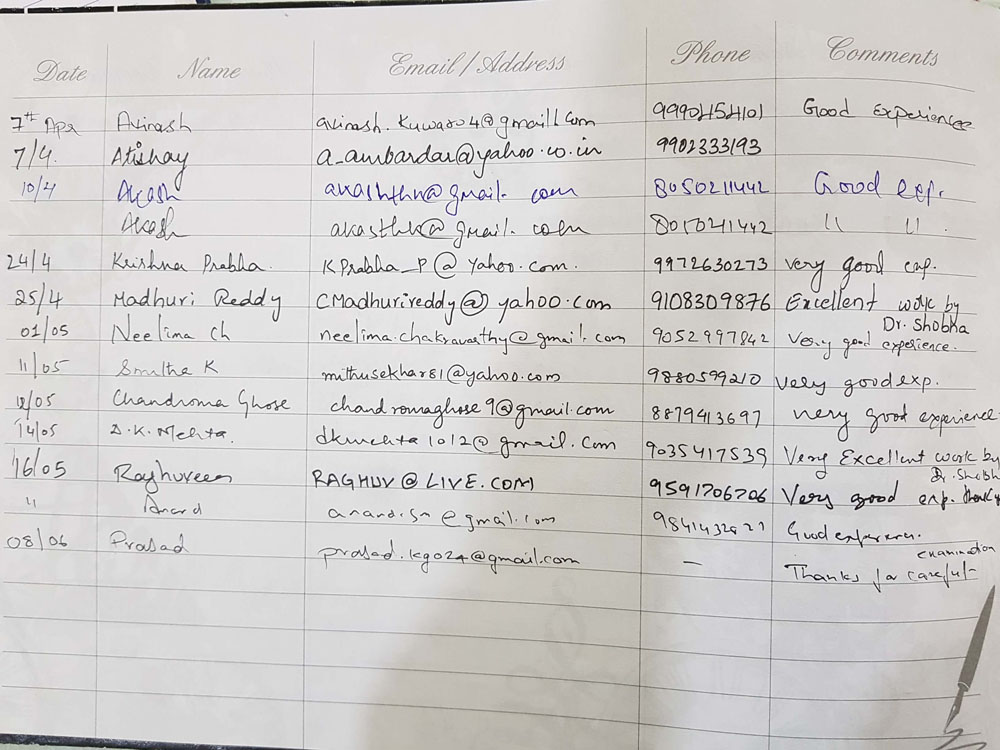 Date Name Email / Address Phone Comments
7th Apr Avinash avinash.kuwar04@gmail.com 9990454101 Good Experience
7/4. Atishay a_ambardar@yahoo.co.in 9902333193
10/4 Akash akashthk@gmail.com 8050211442 Good exp.
Akash akasthk@gmail.com 8050211442 " "
24/4 Krishna Prabha. KPrabha_P@Yahoo.com. 9972630273 very good exp.
25/4 Madhuri Reddy CMadhurireddy@yahoo.com 9108309876 Excellent work by
Dr. Shobha
01/05 Neelima Ch neelima.chakravarthy@gmail.com 9052997842 Very good experience.
11/05 Smitha K mithusekhar81@yahoo.com 9880599210 Very good exp.
12/05 Chandroma Ghose chandromaghose9@gmail.com 8879413697 very good experience.
14/05 D.K. Mehta. dkmehta1012@gmail.com 9035417539 Very Excellent work by
Dr. Shobh
16/05 Raghuveer RAGHUV@LIVE.COM 9591706706 Very good exp. thanks
" Anand anand.sn@gmail.com Good experience.
08/06 Prasad prasad.kg024@gmail.com – examination
Thanks for careful